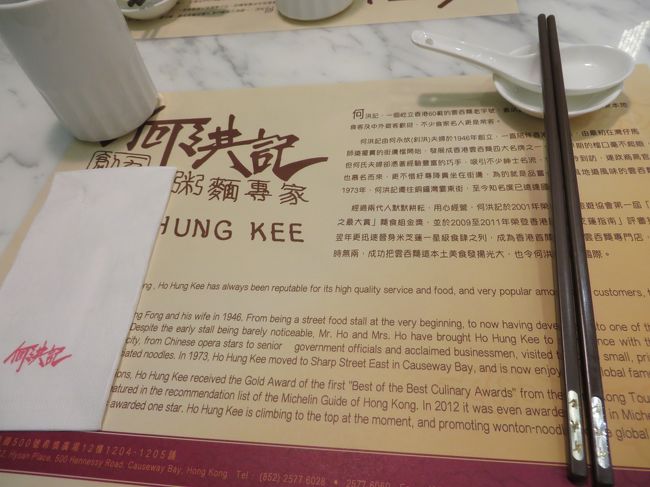 何洪記
粥麵專家
HUNG KEE
何洪記
何洪記，一個屹立香港60載的雲吞麵老字號，
食客及中外遊客歡迎，不少食家名人更是常客。
何洪記由何永放(釗洪)夫婦於1946年創立，一直
但何氏夫婦卻憑著經驗豐富的巧手，吸引不少紳士名流，
也慕名而來，更不惜紆尊降貴坐在街邊，為的就是品嘗
1973年，何洪記遷往銅鑼灣霎東街，至今知名度已遠
經過兩代人默默耕耘，用心經營，何洪記於2001年榮
之最大賞」麵食組金獎，並於2009至2011年榮登香港
翌年更迅速晉身米芝蓮一星級食肆之列，成為香港首間
時無兩，成功把雲吞麵這本土美食發揚光大，也令何洪
, Ho Hung Kee has always been reputable for its high quality service and food, and very popular customers,
Fong and his wife in 1946. From being a street food stall at the very beginning, to now having one of the
Despite the early stall being barely noticeable, Mr. Ho and Mrs. Ho have brought Ho Hung Kee to with the
city, from Chinese opera stars to senior government officials and acclaimed businessmen, visited small,
noodles. In 1973, Ho Hung Kee moved to Sharp Street East in Causeway Bay, and is now enjoy global
Ho Hung Kee received the Gold Award of the first "Best of the Best Culinary Awards" from the
in the recommendation list of the Michelin Guide of Hong Kong. In 2012 it was even awarded in
awarded one star. Ho Hung Kee is climbing to the top at the moment, and promoting global
500號希慎廣場12樓1204-1205舖
Hysan Place, 500 Hennessy Road, Causeway Bay, Hong Kong Tel : (852) 2577 6028 •